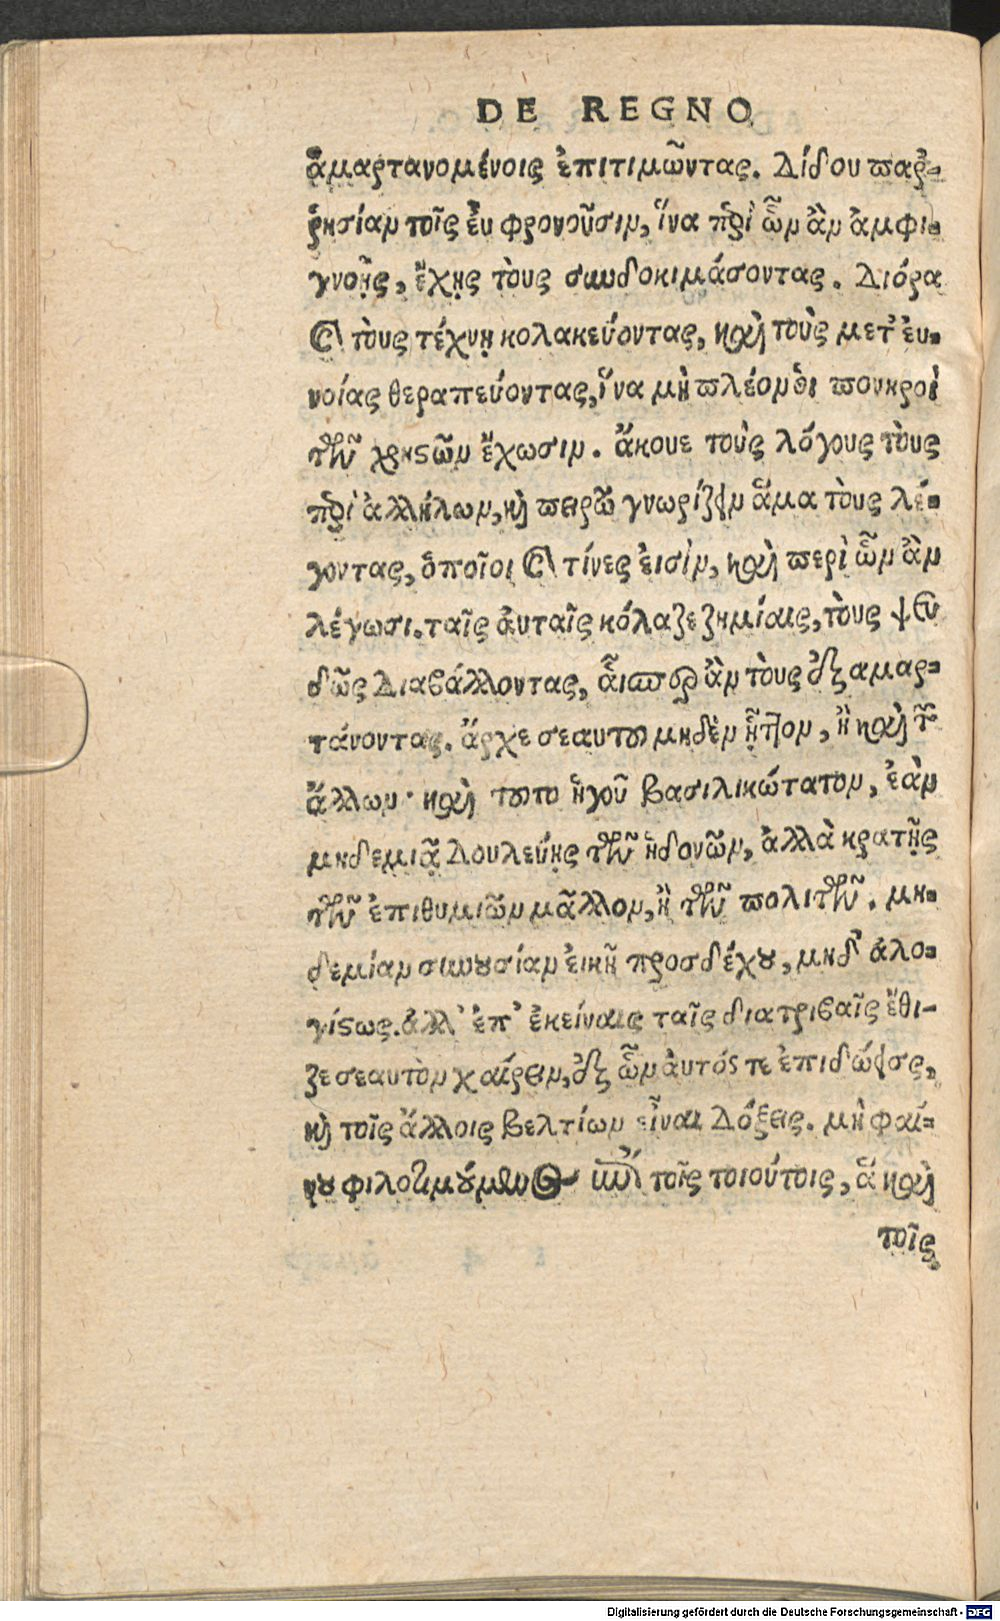 DE REGNO
ἁμαρτανομένοις ἐπιτιμῶντας. Δίδου παῤ-
ῥησίαν τοῖς εὖ φρονοῦσιν, ἵνα περὶ ὧν ἂν ἀμφι-
γνοῇς, ἔχῃς τοὺς συνδοκιμάσοντας. Διόρα
καὶ τοὺς τέχνῃ κολακεύοντας, καὶ τοὺς μετ' εὐ-
νοίας θεραπεύοντας, ἵνα μὴ πλέον οἱ πονηροὶ
τῶν χρηστῶν ἔχωσιν. ἄκουε τοὺς λόγους τοὺς
περὶ ἀλλήλων, καὶ πειρῶ γνωρίζειν ἅμα τοὺς λέ-
γοντας, ὁποῖοι καὶ τίνες εἰσὶν, καὶ περὶ ὧν ἂν
λέγωσι. ταῖς αὐταῖς κόλαζε ζημίαις, τοὺς ψευ
δῶς διαβάλλοντας, αἷσπερ ἂν τοὺς ἐξαμαρ-
τάνοντας. ἄρχε σεαυτοῦ μηδὲν ἧττον, ἢ καὶ τῶν
ἄλλων· καὶ τοῦτο ἡγοῦ βασιλικώτατον, ἐὰν
μηδεμιᾷ δουλεύῃς τῶν ἡδονῶν, ἀλλὰ κρατῇς
τῶν ἐπιθυμιῶν μᾶλλον, ἢ τῶν πολιτῶν. μη-
δεμίαν συνουσίαν εἰκῆ προσδέχου, μηδ' ἀλο-
γίστως. ἀλλ' ἐπ' ἐκείναις ταῖς διατριβαῖς ἔθι-
ζε σεαυτὸν χαίρειν, ἐξ ὧν αὐτός τε ἐπιδώσεις,
καὶ τοῖς ἄλλοις βελτίων εἶναι δόξεις. μὴ φαί-
νου φιλοτιμούμενος ἐπὶ τοῖς τοιούτοις, ἃ καὶ
τοῖς
Digitalisierung gefördert durch die Deutsche Forschungsgemeinschaft - DFG